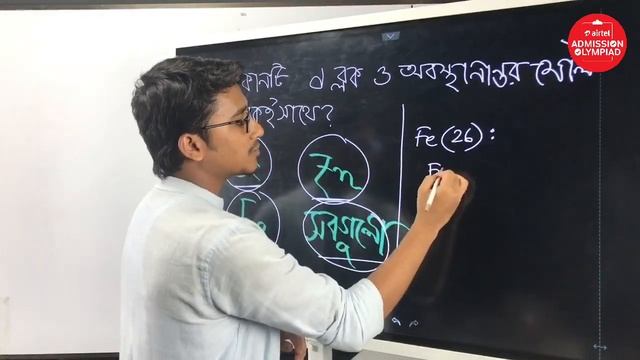 airtel
ADMISSION
OLYMPIAD
d ব্লক ও অবস্থান্তর মৌল
সাথে?
Fe (26):
Zn
সবগুলো